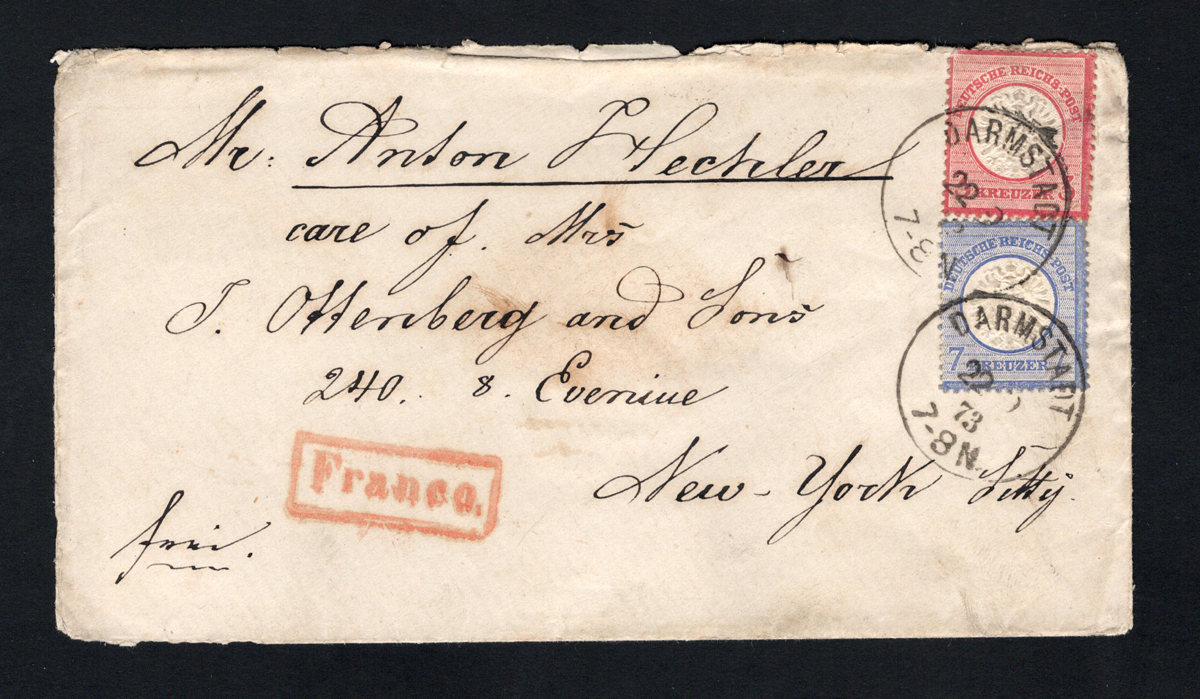 Mr. Anton Hechler
care of. Mrs
J. Ottenberg and Sons
240.. 8. Evenue
New-York Sitty.
frei.
Franco.
DEUTSCHE REICHS-POST
KREUZER 3
DARMSTADT
22
7-8 N
DEUTSCHE REICHS-POST
7 KREUZER
DARMSTADT
22
73
7-8 N.